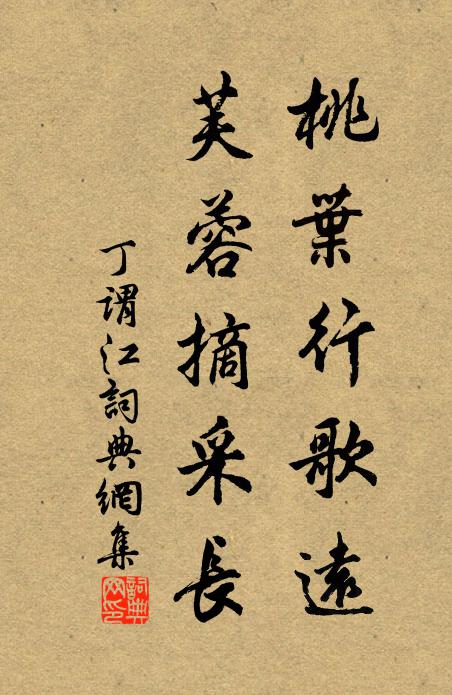 桃葉行歌遠
芙蓉摘采長
丁謂江詞典網集
詞典网印